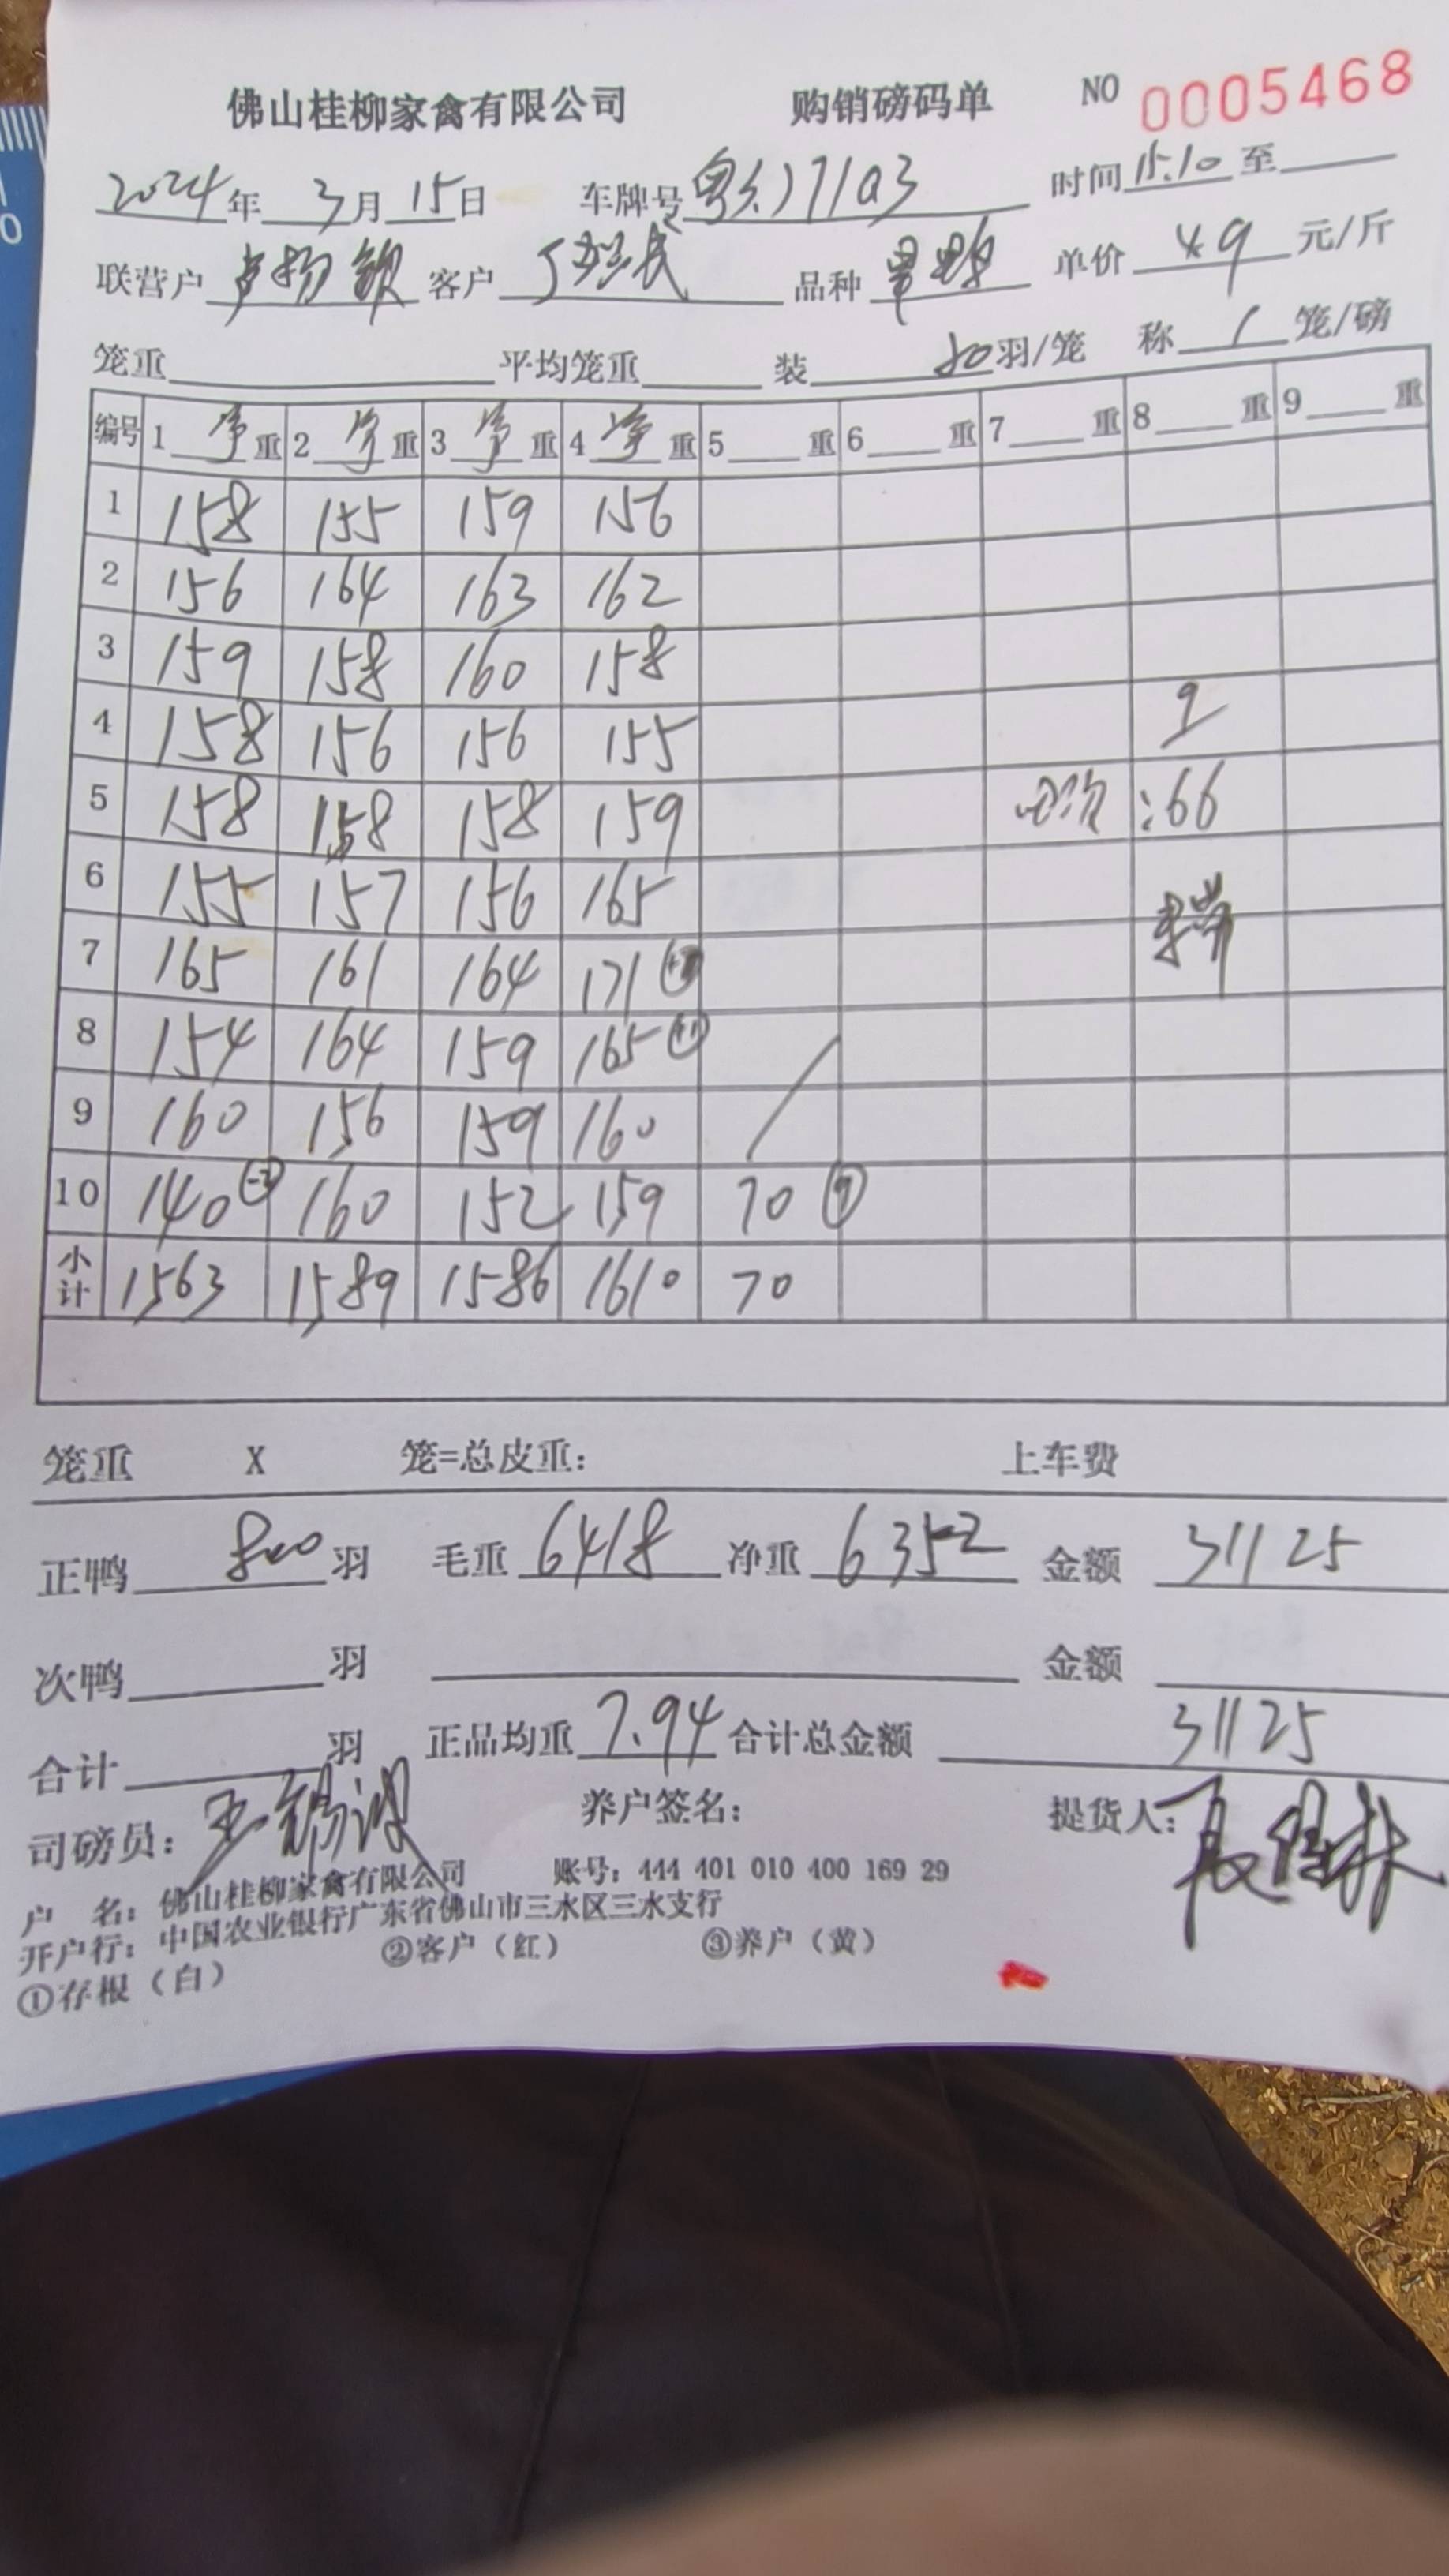 佛山桂柳家禽有限公司 购销磅码单 NO 0005468
2024年 3月 15日 车牌号 时间 15:10 至
联营户 客户 品种 单价 4.9 元/斤
笼重 平均笼重 装 羽/笼 称 1 笼/磅
编号 1 净 重 2 净 重 3 净 重 4 净 重 5 重 6 重 7 重 8 重 9 重
1 158 155 159 156
2 156 164 163 162
3 159 158 160 158
4 158 156 156 155
5 158 158 158 159 :66
6 155 157 156 165
7 165 161 164 171
8 154 164 159 165 (+1)
9 160 156 159 160
10 140 160 152 159 70 (9)
小计 1563 1589 1586 1610 70
笼重 X 笼=总皮重: 上车费
正鸭 800 羽 毛重 6418 净重 6352 金额 31125
次鸭 羽 金额
合计 羽 正品均重 7.94 合计总金额 31125
司磅员: 养户签名: 提货人:
户 名: 佛山桂柳家禽有限公司 账号: 444 401 010 400 169 29
开户行: 中国农业银行广东省佛山市三水区三水支行
①存根（白） ②客户（红） ③养户（黄）